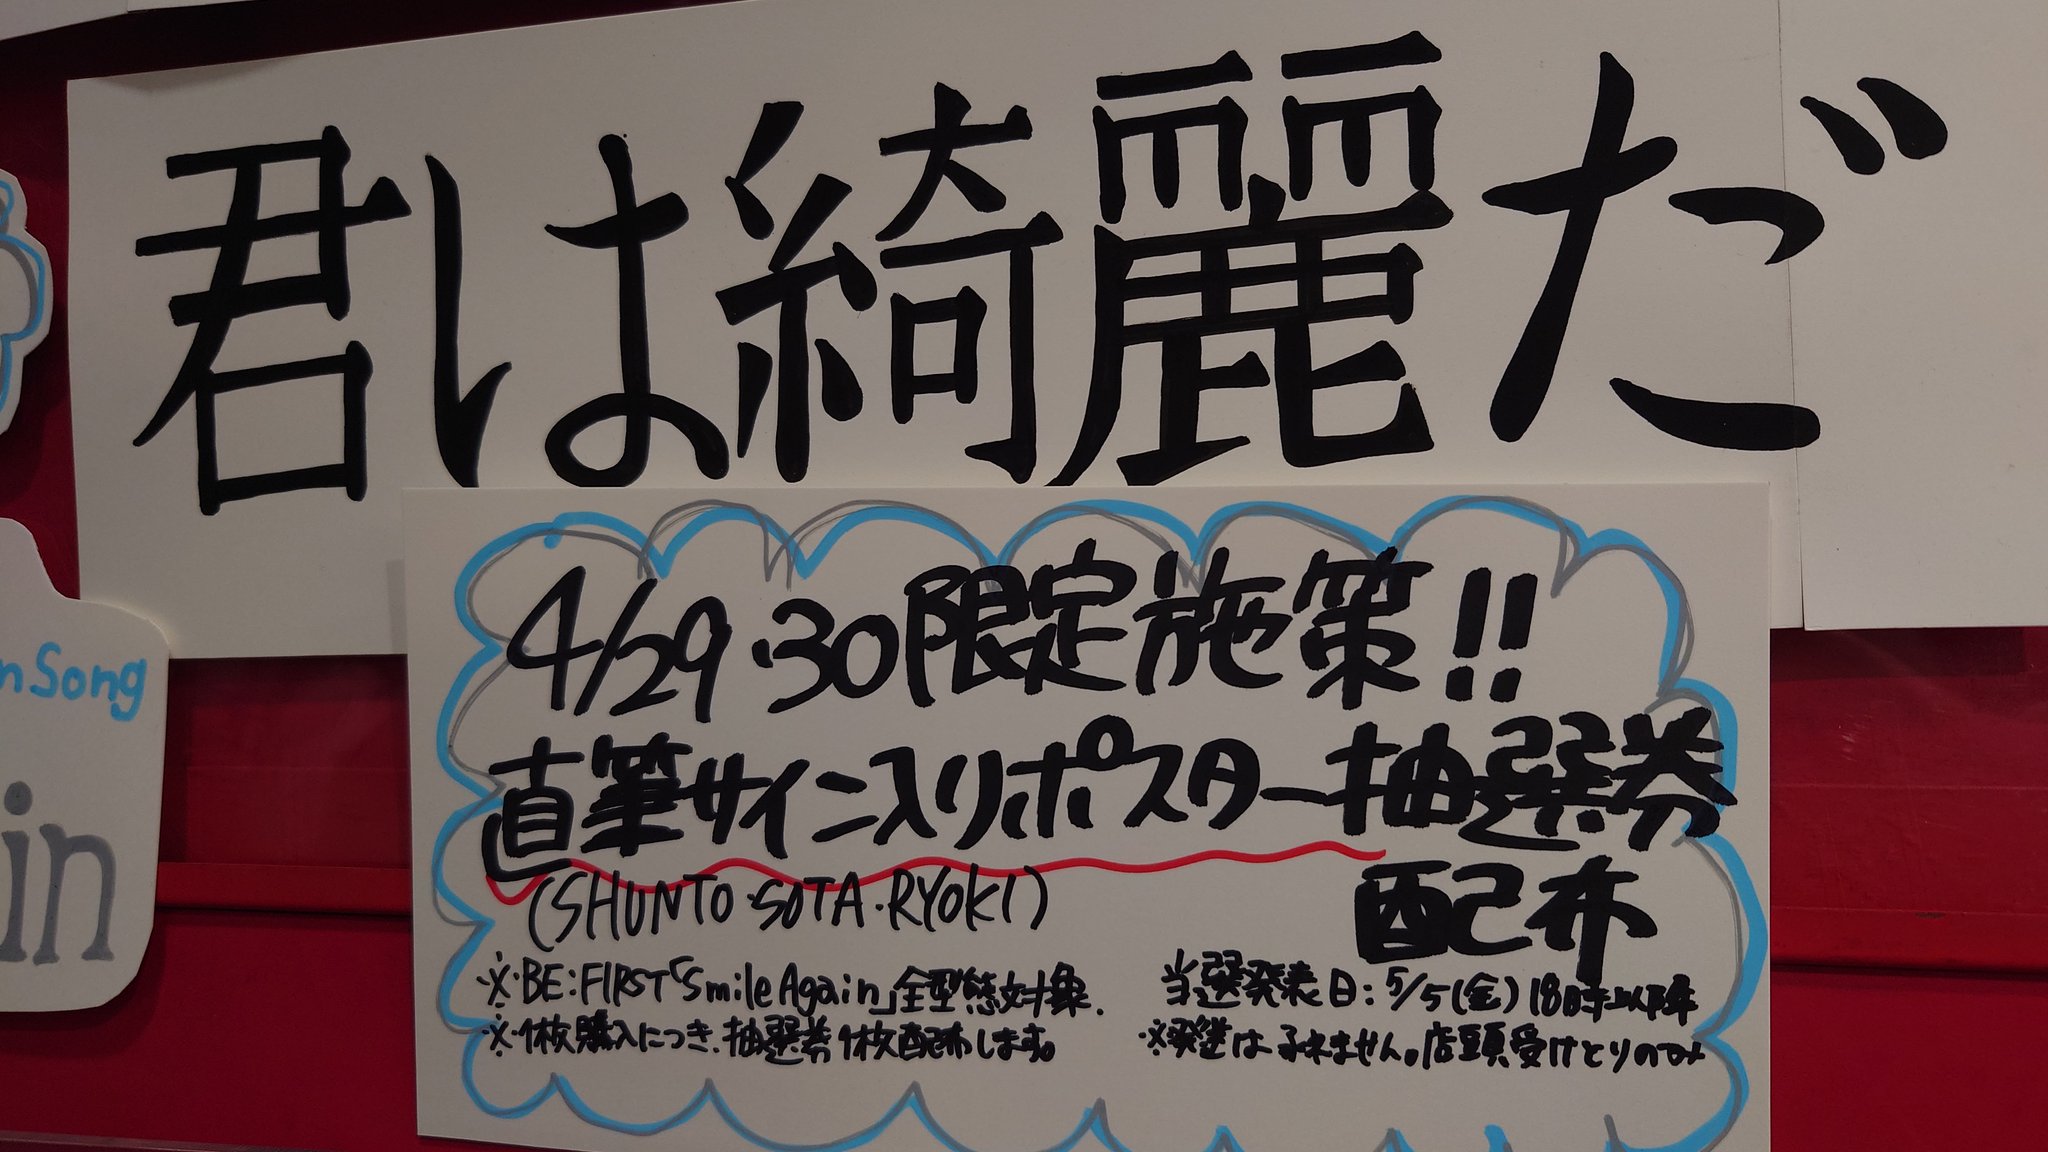 君は綺麗だ
4/29・30限定施策!!
直筆サイン入りポスター抽選券
配布
(SHUNTO・SOTA・RYOKI)
※・BE:FIRST「Smile Again」全型態対象.
※・1枚購入につき、抽選券1枚配布します。
当選発表日:5/5(金)18時以降
※発送は予ねません。店頭受けとりのみ
nSong
in